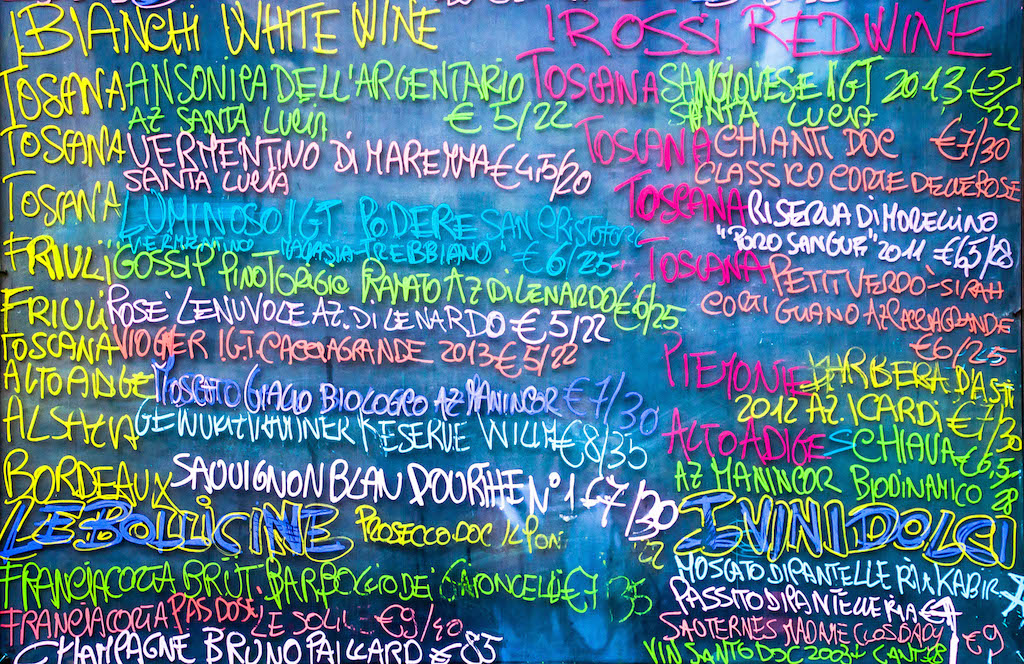 I BIANCHI WHITE WINE
TOSCANA ANSONICA DELL'ARGENTARIO
AZ SANTA LUCIA € 5/22
TOSCANA VERMENTINO DI MAREMMA €4,5/20
SANTA LUCIA
TOSCANA LUMINOSO IGT PODERE SAN CRISTOFORO
VERMENTINO MALVASIA TREBBIANO € 6/25
FRIULI GOSSIP PINOT GRIGIO RAMATO AZ DI LENARDO €6/25
FRIULI ROSE LENUVOLE AZ. DI LENARDO € 5/22
TOSCANA VIOGNER I.G.T. CACCIAGRANDE 2013 € 5/22
ALTO ADIGE MOSCATO GIALLO BIOLOGICO AZ MANINCOR €7/30
ALSAZIA GEWURZTRAMINER RESERVE WILLM €8/35
BORDEAUX SAUVIGNON BLAN DOURTHE N°1 €7/30
LE BOLLICINE PROSECCO DOC IL PON 22
FRANCIACORTA BRUT BARBOGLIO DEI GAIONCELLI €7 35
FRANCIACORTA PAS DOSÉ LE SOLIE €9/40
CHAMPAGNE BRUNO PAILLARD €85
I ROSSI RED WINE
TOSCANA SANGIOVESE IGT 2013 €5/22
SANTA LUCIA
TOSCANA CHIANTI DOC €7/30
CLASSICO CORTE DELLE ROSE
TOSCANA RISERVA DI MORELLINO
"PORO SANGUE" 2011 €6,5/28
TOSCANA PETIT VERDÒ-SIRAH
CORTIGLIANO AZ CACCIAGRANDE
€6/25
PIEMONTE BARBERA D'ASTI
2012 AZ. ICARDI €7/30
ALTO ADIGE SCHIAVA €6,5/28
AZ MANINCOR BIODINAMICO
I VINI DOLCI
MOSCATO DI PANTELLERIA KABIR €7
PASSITO DI PANTELLERIA €7
SAUTERNES MADAME CLOS DADY €9
VIN SANTO DOC 2007